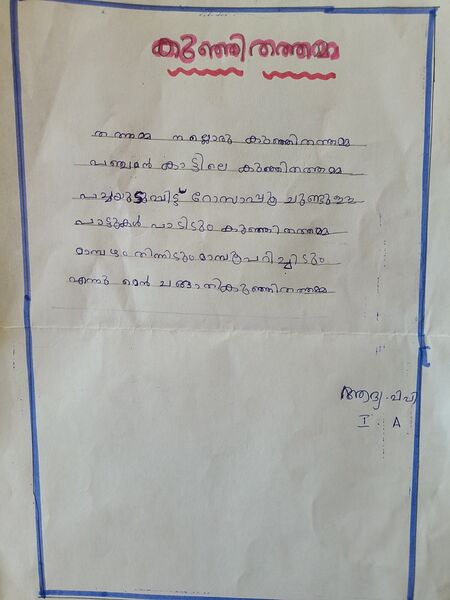 കുഞ്ഞിതത്തമ്മ
തത്തമ്മ നല്ലൊരു കുഞ്ഞിതത്തമ്മ
പഞ്ചമൻ കാട്ടിലെ കുഞ്ഞിതത്തമ്മ
പച്ചയുടുപ്പിട്ട് റോസാപ്പൂ ചുണ്ടുള്ള
പാട്ടുകൾ പാടിടും കുഞ്ഞിതത്തമ്മ
മാമ്പഴം തിന്നിടും മാമ്പൂ പറിച്ചിടും
എന്നു മെൻ ചങ്ങാതികുഞ്ഞിതത്തമ്മ
ആദ്യ. പി പി
I A